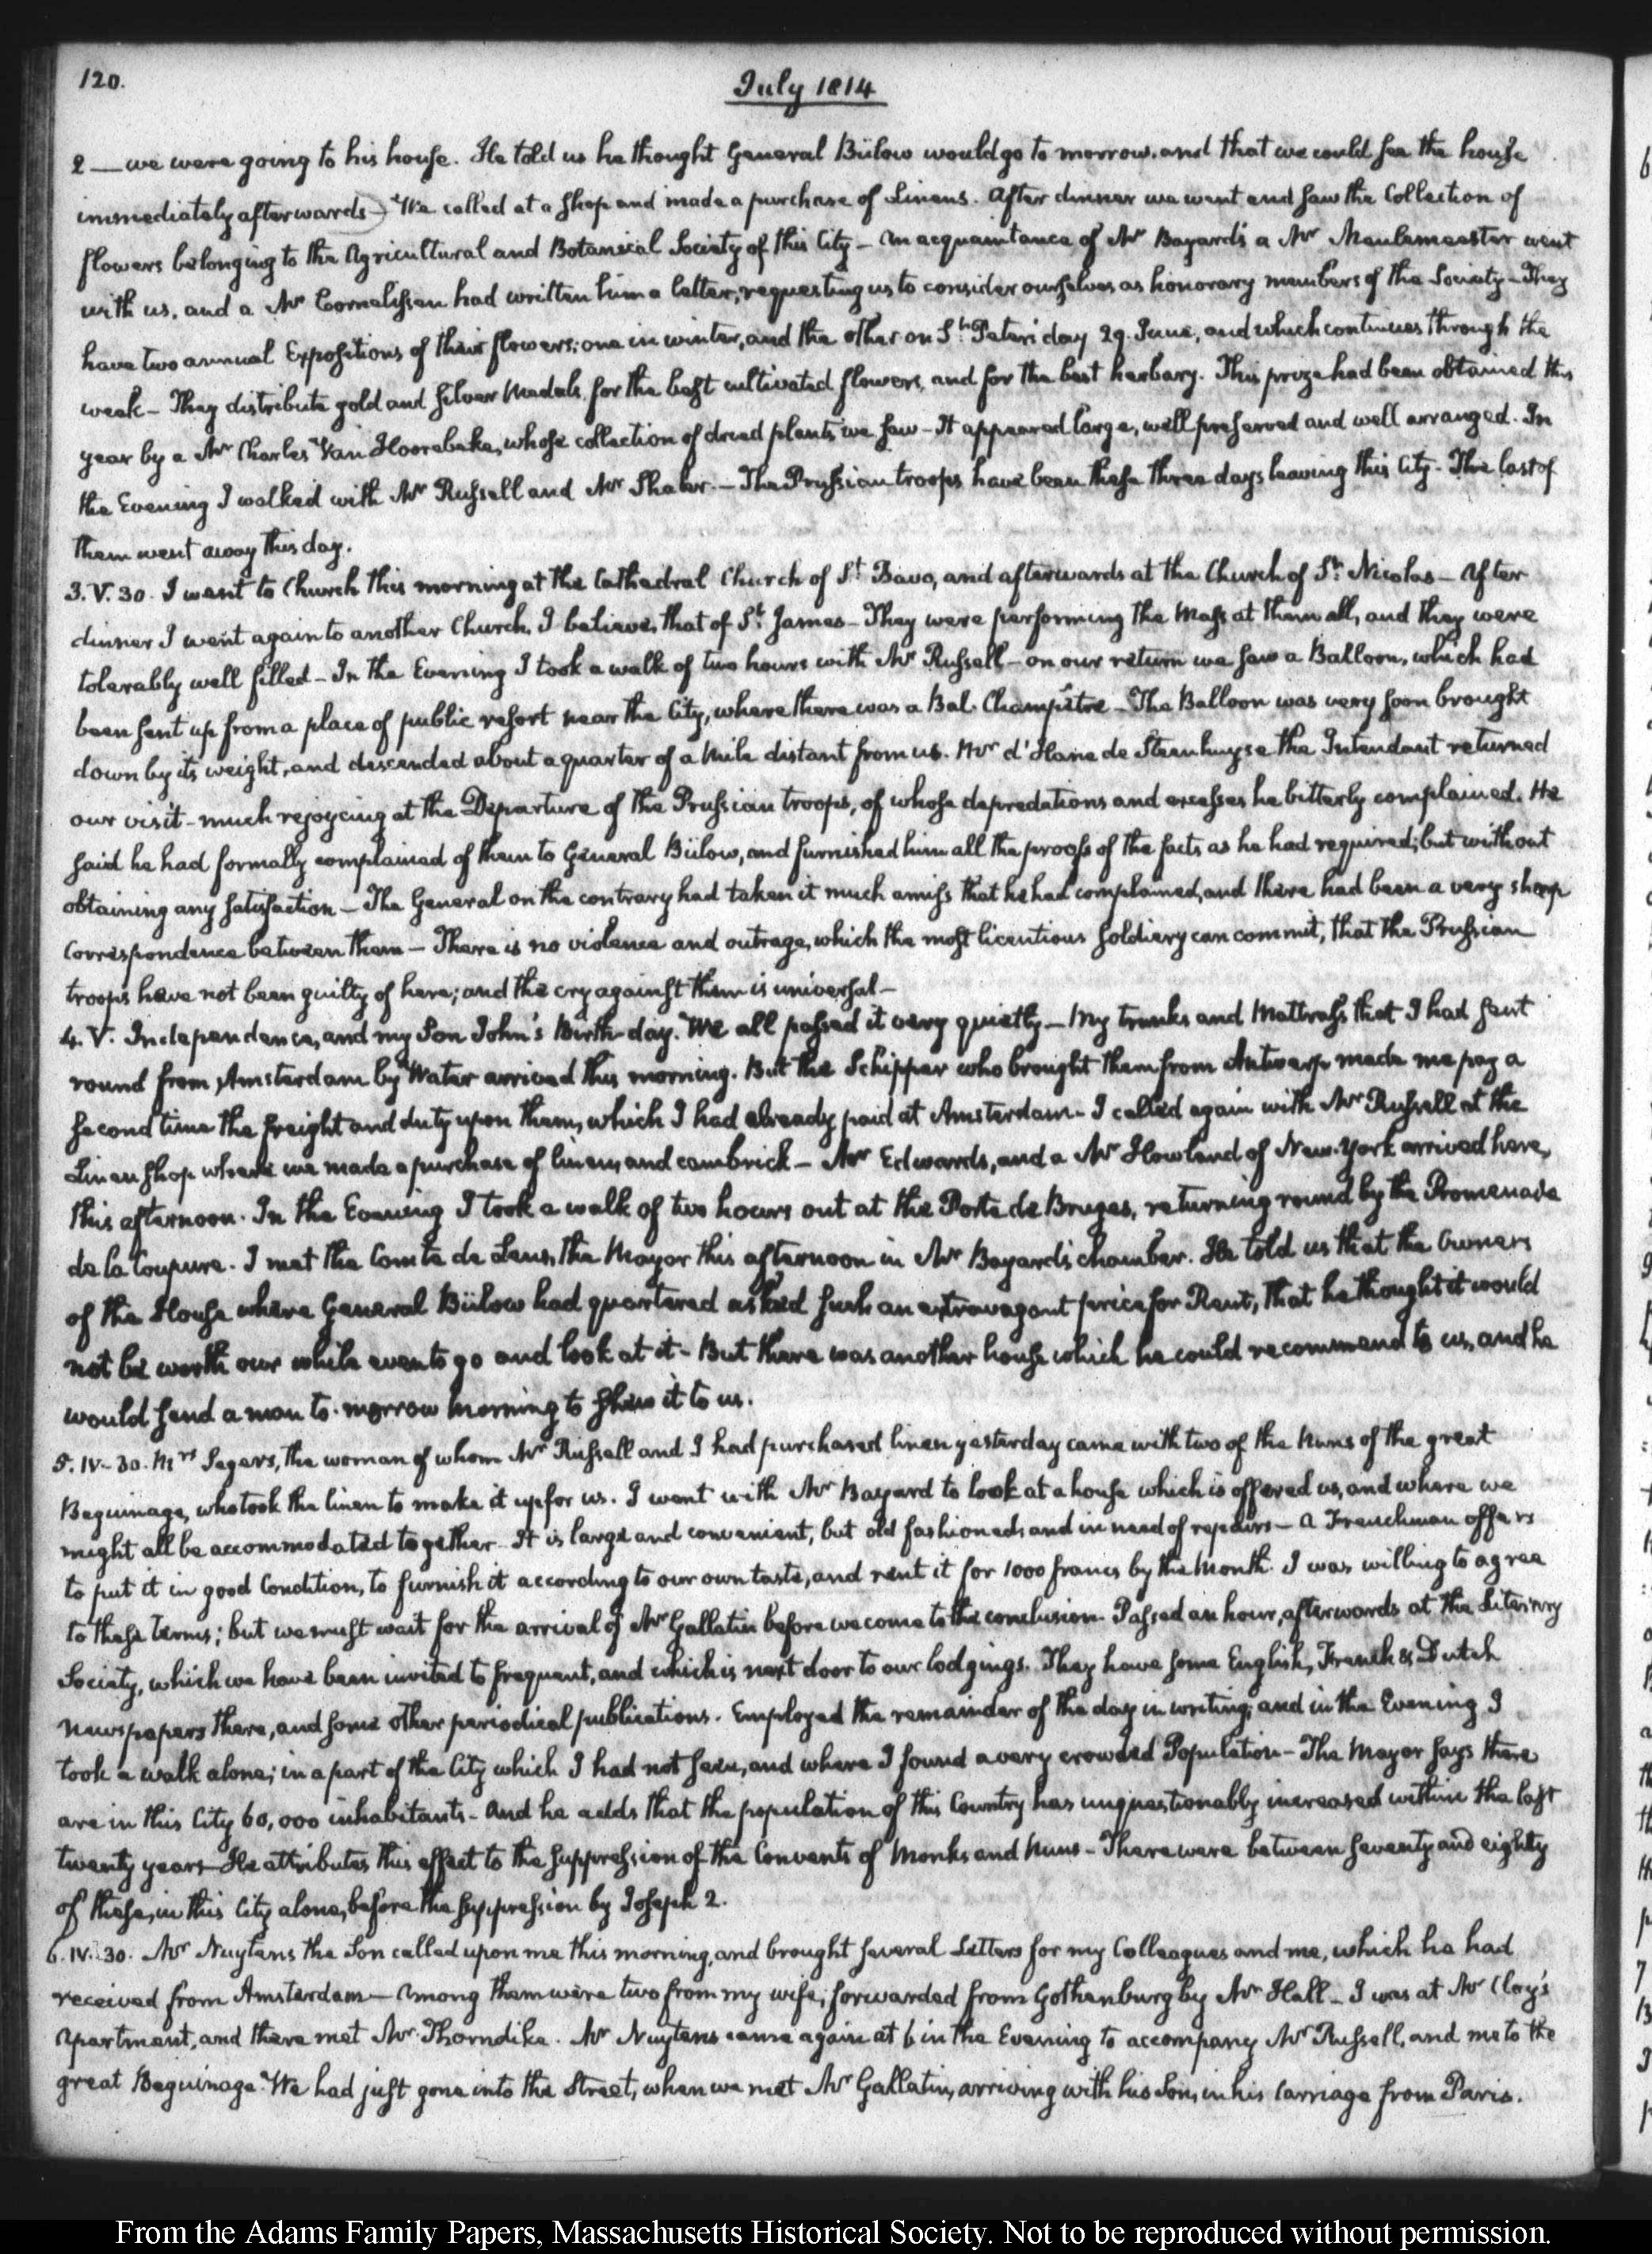 120.
July 1814
2 — we were going to his house. He told us he thought General Bülow would go to morrow, and that we could see the house
immediately afterwards — We called at a shop and made a purchase of Linens. After dinner we went and saw the Collection of
flowers belonging to the Agricultural and Botanical Society of this City — An acquaintance of Mr Bayard's a Mr Meulemeester went
with us, and a Mr Cornelissen had written him a letter, requesting us to consider ourselves as honorary members of the Society — They
have two annual Expositions of their flowers; one in winter, and the other on St. Peter's day 29. June, and which continues through the
week — They distribute gold and silver Medals, for the best cultivated flowers, and for the best herbary. This prize had been obtained this
year by a Mr Charles Van Hoorebeke, whose collection of dried plants we saw — It appeared large, well preserved and well arranged. In
the Evening I walked with Mr Russell and Mr Shaler. — The Prussian troops have been these three days leaving this City — The last of
them went away this day.
3. V. 30. I went to Church this morning at the Cathedral Church of St. Bavo, and afterwards at the Church of St. Nicolas — After
dinner I went again to another Church, I believe, that of St. James — They were performing the Mass at them all, and they were
tolerably well filled — In the Evening I took a walk of two hours with Mr Russell — on our return we saw a Balloon, which had
been sent up from a place of public resort near the City, where there was a Bal Champêtre — The Balloon was very soon brought
down by its weight, and descended about a quarter of a Mile distant from us. Mr d'Hane de Steenhuyse the Intendant returned
our visit — much rejoycing at the Departure of the Prussian troops, of whose depredations and excesses he bitterly complained. He
said he had formally complained of them to General Bülow, and furnished him all the proofs of the facts as he had required; but without
obtaining any satisfaction — The General on the contrary had taken it much amiss that he had complained, and there had been a very sharp
Correspondence between them — There is no violence and outrage, which the most licentious soldiery can commit, that the Prussian
troops have not been guilty of here; and the cry against them is universal —
4. V. Independence, and my Son John's Birth-day. We all passed it very quietly — My trunks and Mattress that I had sent
round from Amsterdam by Water arrived this morning. But the Schipper who brought them from Antwerp made me pay a
second time the freight and duty upon them, which I had already paid at Amsterdam — I called again with Mr Russell at the
Linen shop where we made a purchase of linens and cambrick — Mr Edwards, and a Mr Howland of New-York arrived here,
this afternoon. In the Evening I took a walk of two hours out at the Porte de Bruges, returning round by the Promenade
de la Coupure. I met the Comte de Lens, the Mayor this afternoon in Mr Bayard's chamber. He told us that the Owners
of the House where General Bülow had quartered asked such an extravagant price for Rent, that he thought it would
not be worth our while even to go and look at it — But there was another house which he could recommend to us, and he
would send a man to-morrow morning to shew it to us.
5. IV- 30. Mrs Segers, the woman of whom Mr Russell and I had purchased linen yesterday came with two of the Nuns of the great
Beguinage, who took the linen to make it up for us. I went with Mr Bayard to look at a house which is offered us, and where we
might all be accommodated together — It is large and convenient, but old fashioned, and in need of repairs — A Frenchman offers
to put it in good Condition, to furnish it according to our own taste, and rent it for 1000 francs by the Month. I was willing to agree
to these terms; but we must wait for the arrival of Mr Gallatin before we come to the conclusion. Passed an hour, afterwards at the Literary
Society, which we have been invited to frequent, and which is next door to our lodgings. They have some English, French & Dutch
newspapers there, and some other periodical publications. Employed the remainder of the day in writing; and in the Evening I
took a walk alone; in a part of the City which I had not seen, and where I found a very crowded Population — The Mayor says there
are in this City 60,000 inhabitants — And he adds that the population of this Country has unquestionably increased within the last
twenty years — He attributes this effect to the suppression of the Convents of Monks and Nuns — There were between seventy and eighty
of these, in this City alone, before the suppression by Joseph 2.
6. IV. 30. Mr Nuytens the Son called upon me this morning, and brought several Letters for my Colleagues and me, which he had
received from Amsterdam — Among them were two from my wife, forwarded from Gothenburg by Mr Hall — I was at Mr Clay's
Apartment, and there met Mr Thorndike. Mr Nuytens came again at 6 in the Evening to accompany Mr Russell, and me to the
great Beguinage. We had just gone into the Street, when we met Mr Gallatin, arriving with his Son, in his Carriage from Paris.
From the Adams Family Papers, Massachusetts Historical Society. Not to be reproduced without permission.